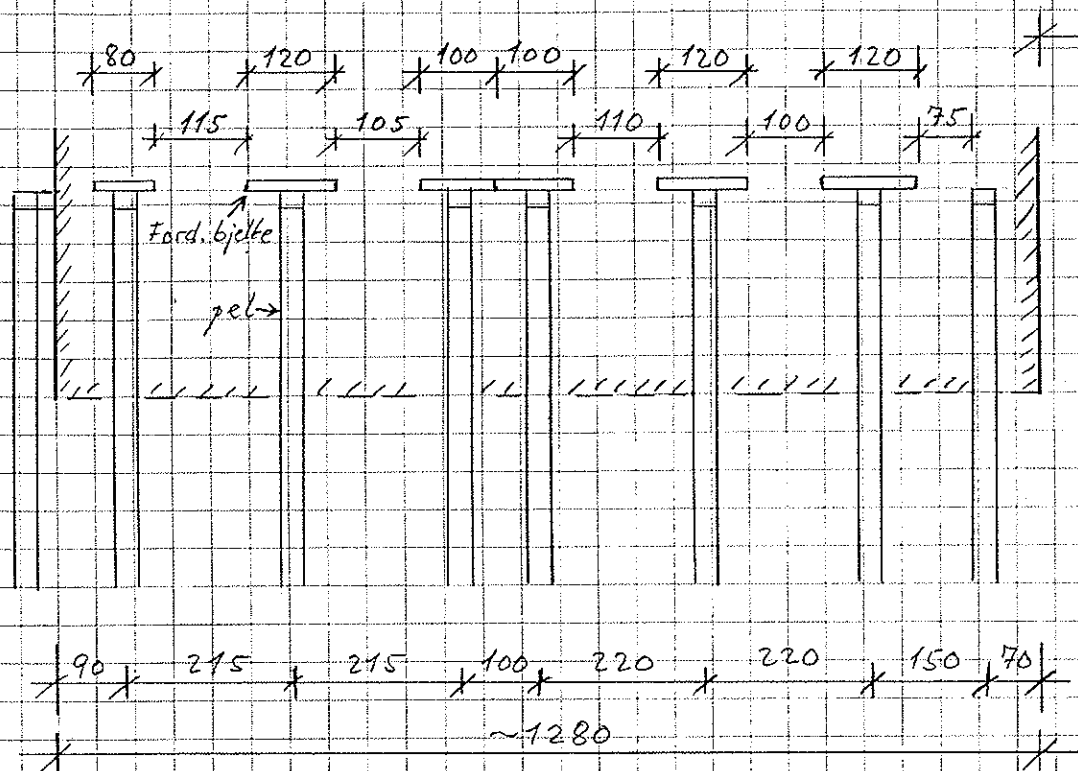 80 120 100 100 120 120
115 105 110 100 75
Ford. bjelke
pel
90 215 215 100 220 220 150 70
~1280